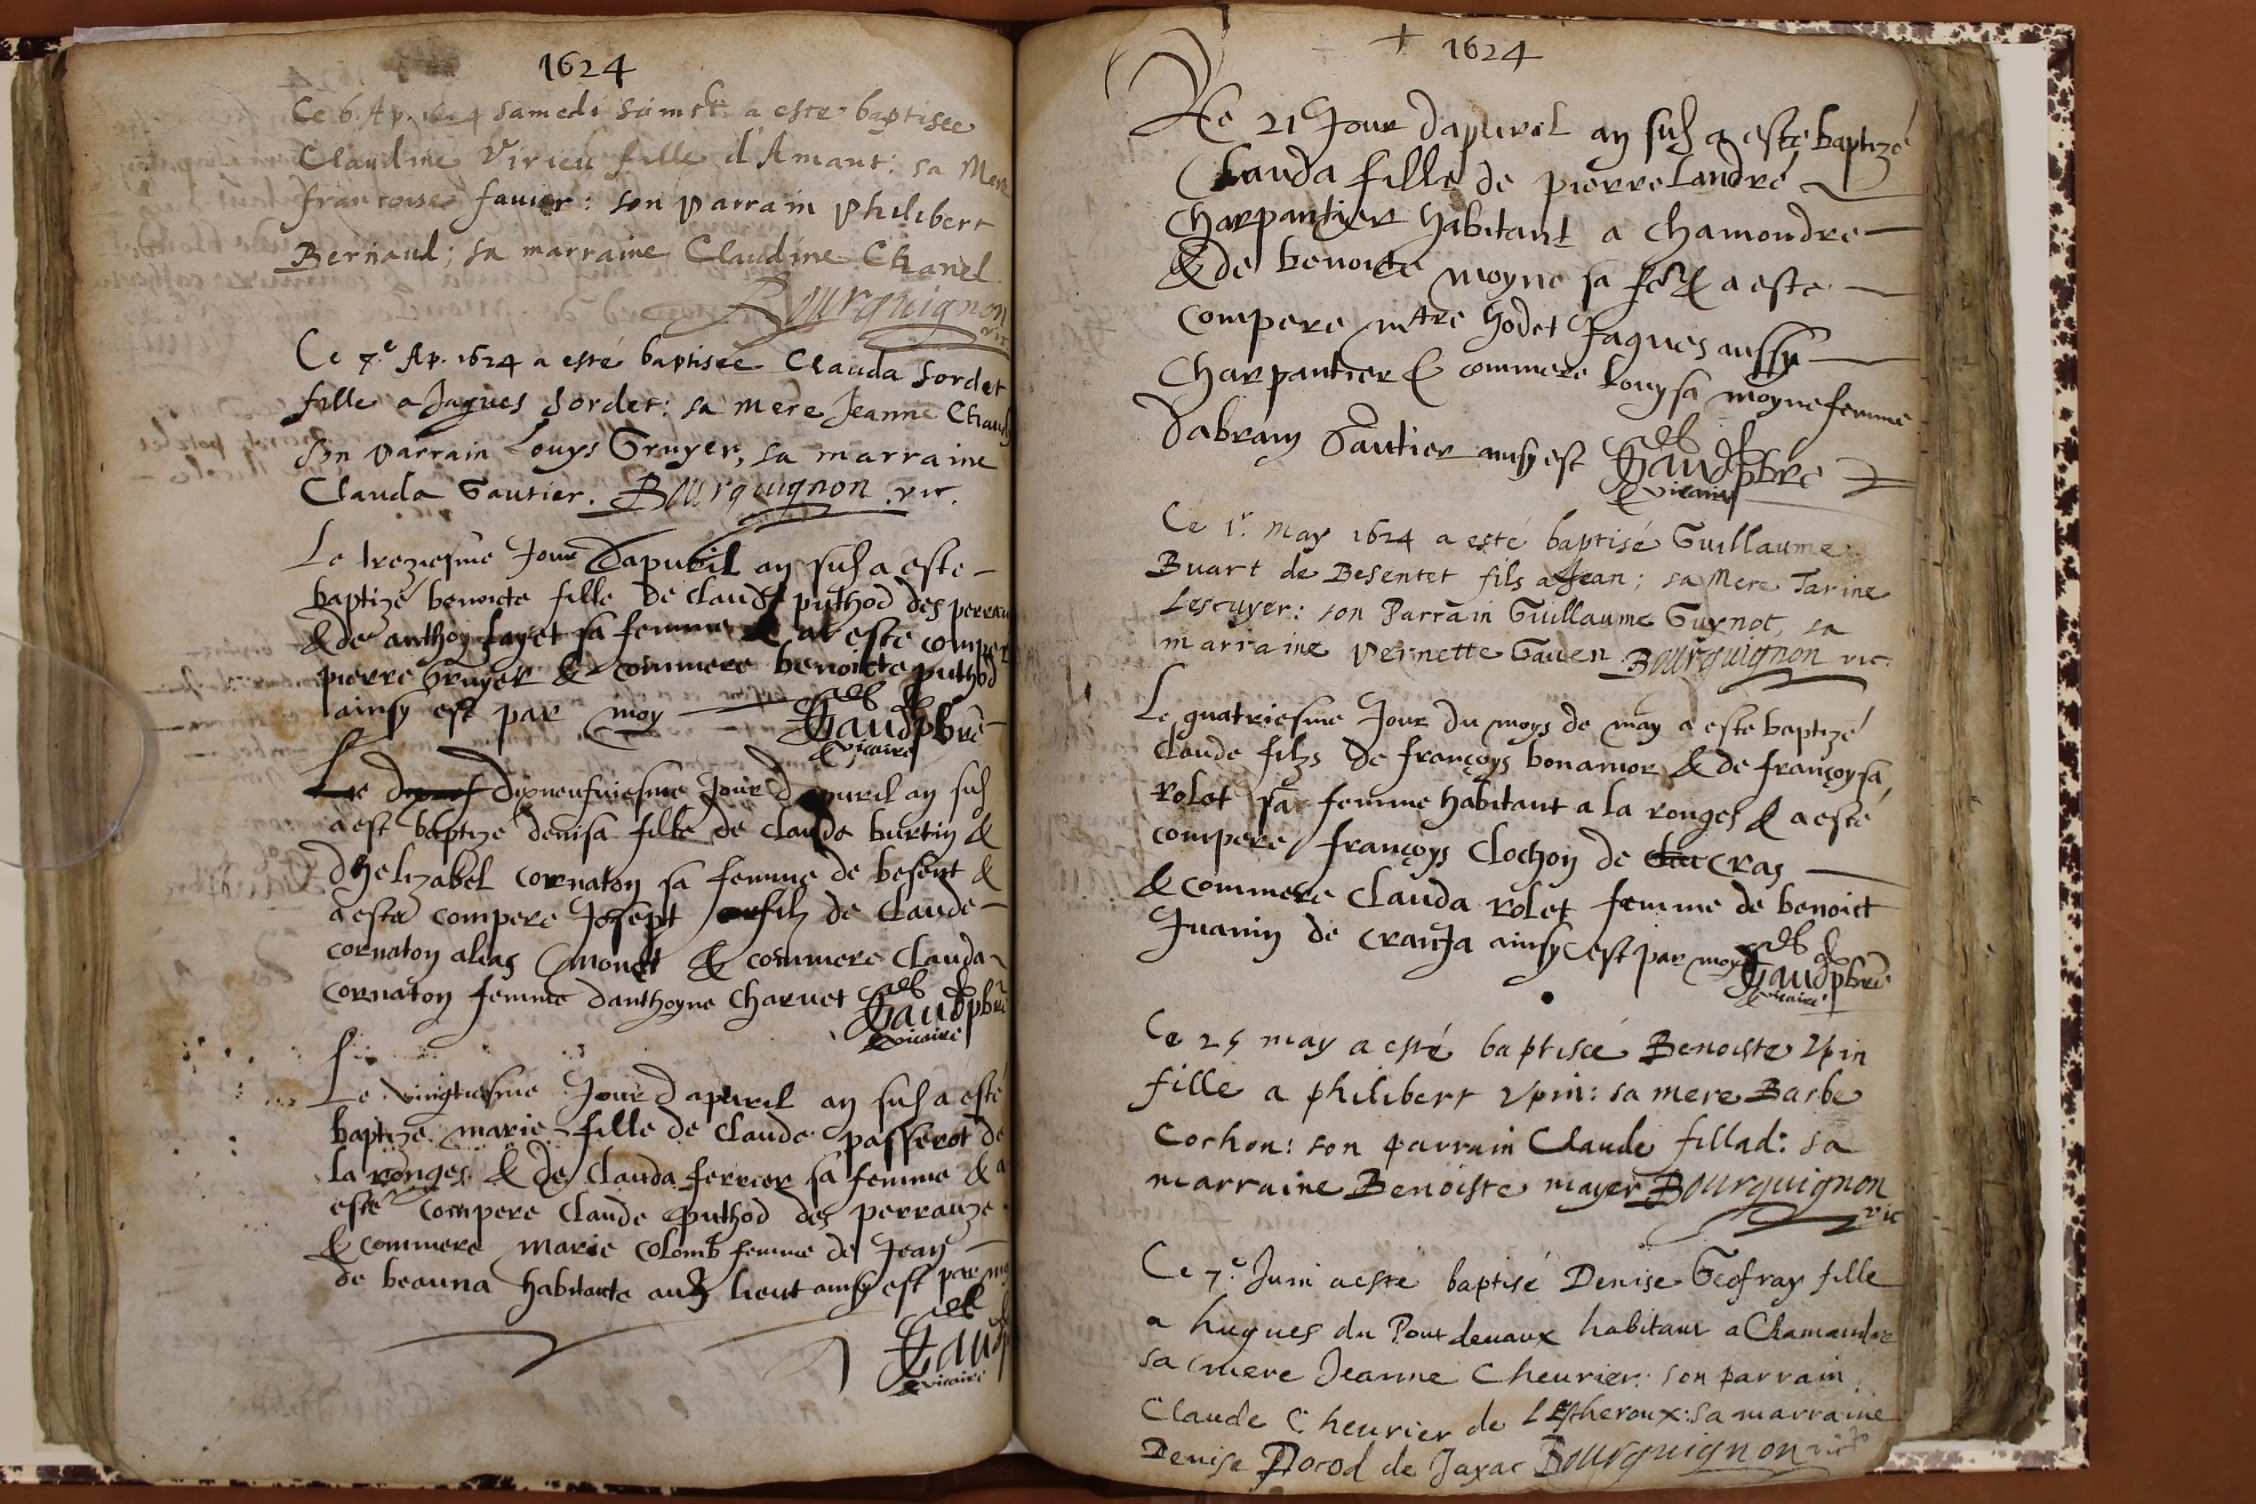 1624
Ce 6 Ap. 1624 samedi sainct a este baptisee
Claudine Virieu fille d'Amant: sa Mere
francoise favier: son parrain philibert
Bernaud; sa marraine Claudine Chanel
Bourguignon
vic
Ce 7.e Ap. 1624 a esté baptisée Clauda Sordet
fille a Jaques Sordet: sa mere Jeanne
son parrain Louys Gruyer, sa marraine
Clauda Gautier. Bourguignon vic.
Le treziesme Jour Dapvril an susd a este
baptizé benoicte fille de Claude puthod des
& de anthoy fayet sa femme & at este
pierre Gruyer & commere benoicte puthod
ainsy est par moy
Gaud pbre
vicaire
Le dixneufviesme Jour dapvril an susd
a est baptizé denisa fille de Claude burtin &
dhelizabel cornaton sa femme de besent &
a esté compere Josept filz de Claude
cornaton alias monet & commere Clauda
cornaton femme danthoyne Charvet
Gaud pbre
vicaire
Le vingtiesme Jour dapvril an susd a esté
baptizé marie fille de Claude passerot de
la ronges & de Clauda ferrier sa femme & a
esté compere Claude puthod des perrauze
& commere marie colomb femme de Jean
de beauna habitante aud lieut ainsy est par
Gaud
vicaire
1624
Ce 21 Jour dapvril an susd a este baptizé
Clauda fille de pierre Landré
Charpantier habitant a chamondre
& de benoite moyne sa fe a este
compere mtre hodet Jaques aussy
Charpantier & commere Louysa moyne femme
dabram Gautier ainsy est
Gaud pbre
vicaire
Ce 1.r May 1624 a esté baptisé Guillaume
Buart de Besentet fils a Jean; sa Mere Tarine
Lescuyer: son Parrain Guillaume Guynot, sa
marraine pernette Gaven Bourguignon vic.
Le quatriesme Jour du moys de may a este baptizé
Claude filzs de françoys bonamor & de françoysa
Rolet sa femme habitant a la ronges & a esté
compere françoys Clochon de Cras
& commere Clauda rolet femme de benoict
Juanin de cranja ainsy est par moy
Gaud pbre
vicaire
Ce 25 may a esté baptisée Benoiste Vpin
fille a philibert Vpin: sa mere Barbe
Cochon: son parrain Claude fillad: sa
marraine Benoiste mayer Bourguignon
vic
Ce 7.e Juin a este baptisé Denise Geofray fille
a hugues du Pont devaux habitant a Chamandre
sa mere Jeanne Chevrier: son parrain
Claude Chevrier de Lescheroux: sa marraine
Denise Pocod de Jayac Bourguignon